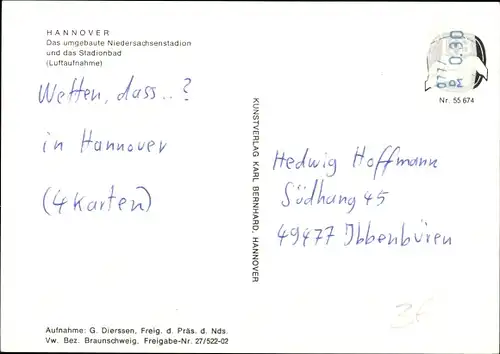 HANNOVER
Das umgebaute Niedersachsenstadion
und das Stadionbad
(Luftaufnahme)
Wetten, dass..?
in Hannover
(4 Karten)
KUNSTVERLAG KARL BERNHARD, HANNOVER
0.30
Nr. 55 674
Hedwig Hoffmann
Südhang 45
49477 Ibbenbüren
3€
Aufnahme: G. Dierssen, Freig. d. Präs. d. Nds.
Vw. Bez. Braunschweig, Freigabe-Nr. 27/522-02